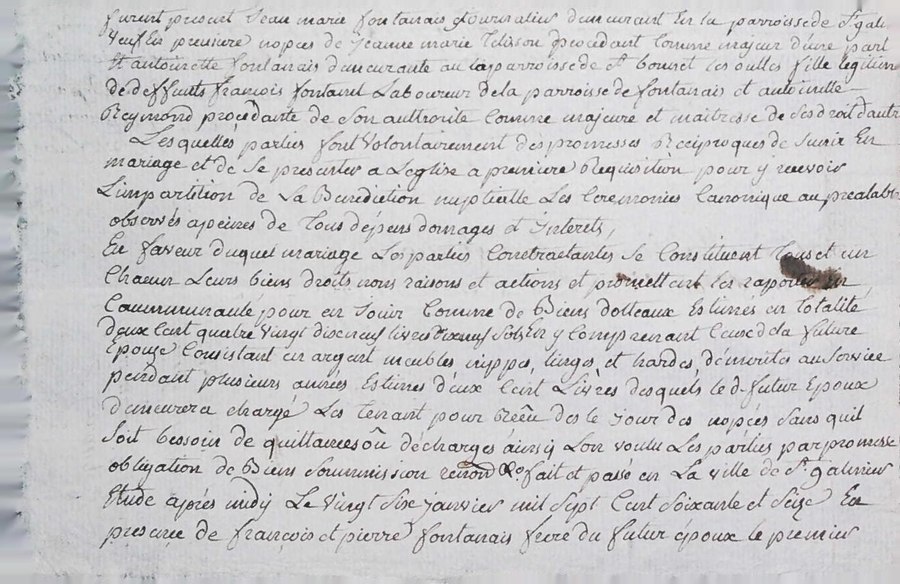 furent present Jean marie fontanais journalier demeurant En la parroisse de St gal
veuf En premiere nopces de jeanne marie procedant Comme majeur d'une part
Et antoinette fontanais demeurante au la parroisse de St bonnet Les oulles fille legitim
de deffunts françois fontanet Laboureur de la parroisse de fontanais et antoinette
Reymond procedante de Son authorité Comme majeure et maitresse de Ses droit d'autr
Lesquelles parties font Volontairement des promesses Reciproques de Sunir En
mariage et de Se presenter a Leglise a premiere Requisition pour y recevoir
Limpartition de La Benediction nuptielle Les Ceremonies Canonique au prealabl
observés apeines de Tous dépens domages et Interets,
En faveur duquel mariage Les parties Contractantes Se Constituent Tous et un
Chacun Leurs biens droits noms raisons et actions et promettent les raporter En
Communauté pour en Jouir Comme de Biens dotteaux Estimés en totalité
deux Cent quatre Vingt dix neuf livres dix neuf Sols En y Comprenant Ceux d la future
Epouze Consistant en argent meubles nippes, linges, et hardes, démerités au Service
pendant plusieurs années Estimes deux Cent Livres desquels le d. futur Epoux
demeurera chargé Les Tenant pour Reçu des le Jour des nopces Sans quil
Soit bessoin de quittances ou décharges ainsy Lon voulu Les parties par promesse
obligation de Biens Soummission renon &c. fait et passé en La ville de St galmier
Etude aprés midy Le Vingt Six janvier mil Sept Cent Soixante et Seize En
presence de françois et pierre fontanais frere du futur époux le premier